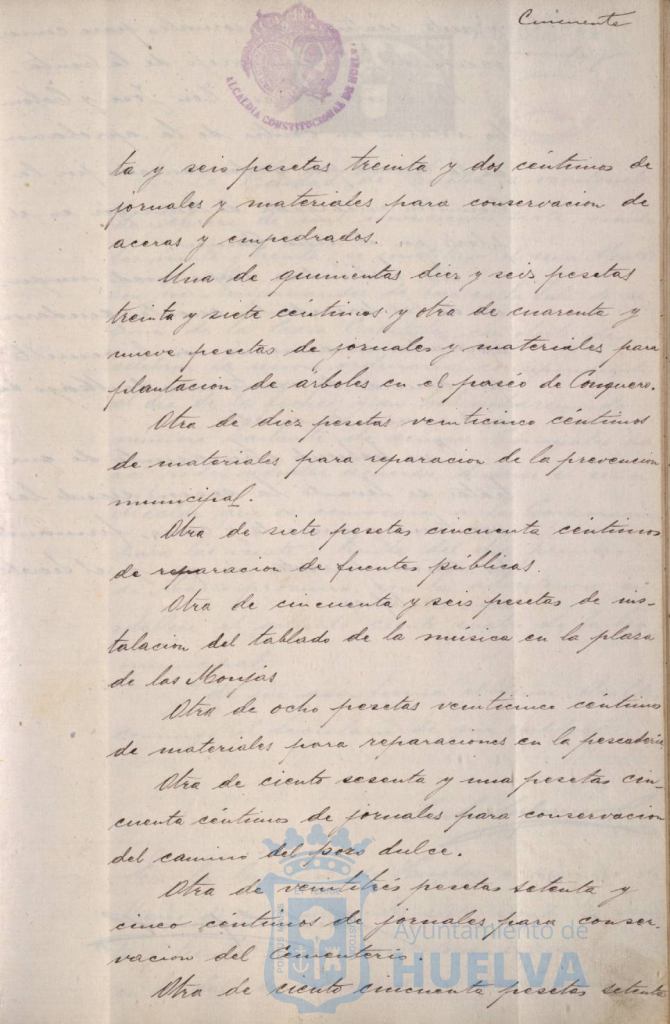 Cincuenta
ALCALDIA CONSTITUCIONAL DE HUELVA
ta y seis pesetas treinta y dos céntimos de
jornales y materiales para conservacion de
aceras y empedrados.
Una de quinientas diez y seis pesetas
treinta y siete céntimos y otra de cuarenta y
nueve pesetas de jornales y materiales para
plantacion de árboles en el paséo de Conquero.
Otra de diez pesetas veinticinco céntimos
de materiales para reparacion de la prevencion
municipal.
Otra de siete pesetas cincuenta céntimos
de reparacion de fuentes públicas.
Otra de cincuenta y seis pesetas de ins-
talacion del tablado de la música en la plaza
de las Monjas
Otra de ocho pesetas veinticinco céntimos
de materiales para reparaciones en la pescadería
Otra de ciento sesenta y una pesetas cin-
cuenta céntimos de jornales para conservacion
del camino del pozo dulce.
Otra de veintitrés pesetas setenta y
cinco céntimos de jornales para conser-
vacion del Cementerio.
Otra de ciento cincuenta pesetas setenta
Ayuntamiento de
HUELVA